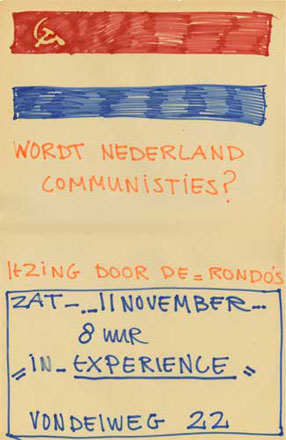 WORDT NEDERLAND
COMMUNISTIES?
ItZING DOOR DE = RONDO'S
ZAT-_..11 NOVEMBER-..
8 UUR
„IN_EXPERIENCE„
VONDELWEG 22